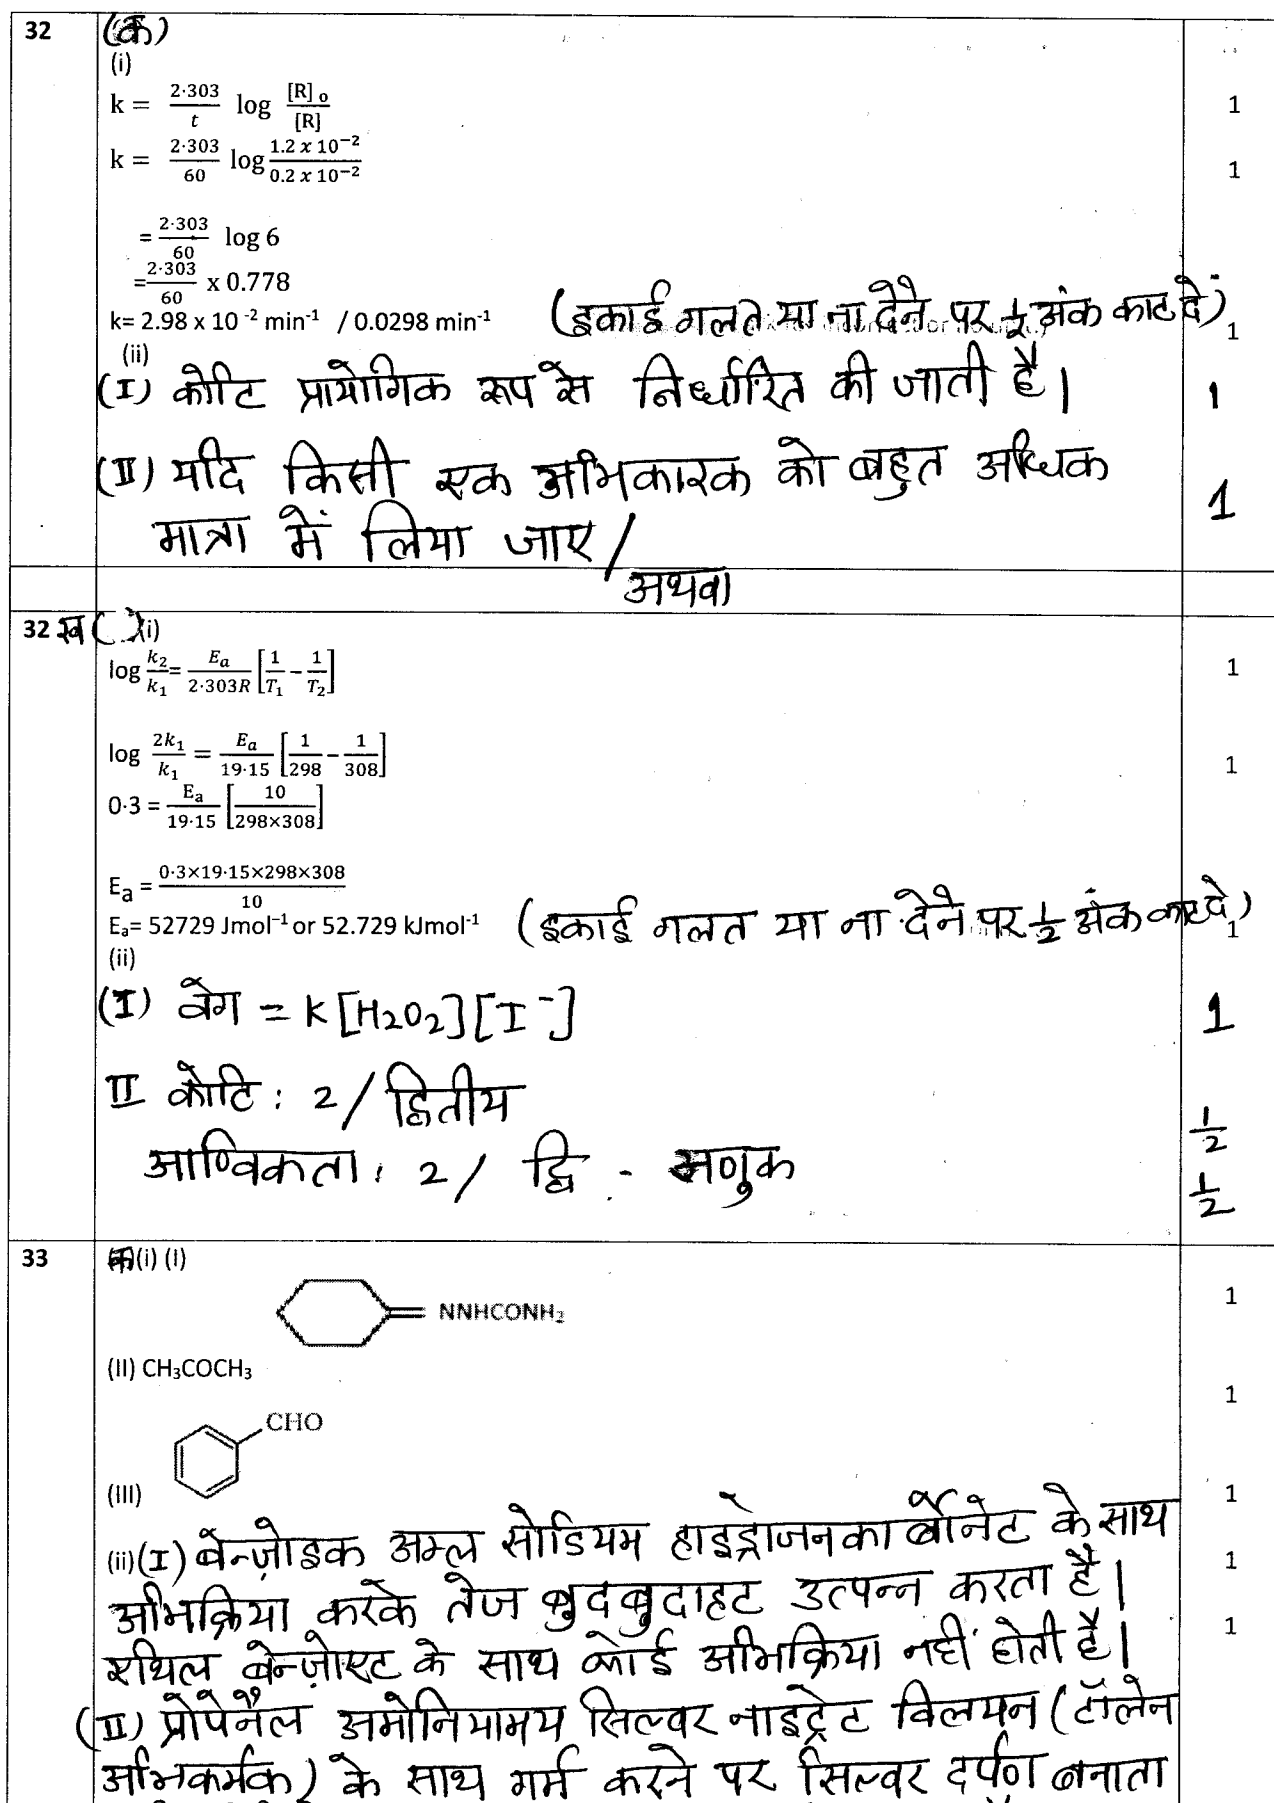 32 (क)
(i)
k = 2·303/t log [R]₀/[R] 1
k = 2·303/60 log 1.2 x 10⁻²/0.2 x 10⁻² 1
= 2·303/60 log 6
= 2·303/60 x 0.778
k= 2.98 x 10⁻² min⁻¹ / 0.0298 min⁻¹ (इकाई गलत या ना देने पर ½ अंक काट दें) 1
(ii)
(I) कोटि प्रायोगिक रूप से निर्धारित की जाती है। 1
(II) यदि किसी एक अभिकारक को बहुत अधिक 1
मात्रा में लिया जाए /
अथवा
32 ख ( ) (i)
log k₂/k₁ = Eₐ/2·303R [1/T₁ − 1/T₂] 1
log 2k₁/k₁ = Eₐ/19·15 [1/298 − 1/308] 1
0·3 = Eₐ/19·15 [10/298×308]
Eₐ = 0·3×19·15×298×308/10
Eₐ= 52729 Jmol⁻¹ or 52.729 kJmol⁻¹ (इकाई गलत या ना देने पर ½ अंक काट दे) 1
(ii)
(I) वेग = K[H₂O₂][I⁻] 1
II कोटि : 2 / द्वितीय ½
आण्विकता : 2 / द्वि - अणुक ½
33 क (i) (I) 1
NNHCONH₂
(II) CH₃COCH₃ 1
CHO
(III) 1
(ii) (I) बेन्ज़ोइक अम्ल सोडियम हाइड्रोजनकार्बोनेट के साथ 1
अभिक्रिया करके तेज बुदबुदाहट उत्पन्न करता है।
एथिल बेन्ज़ोएट के साथ कोई अभिक्रिया नहीं होती है। 1
(II) प्रोपेनैल अमोनियामय सिल्वर नाइट्रेट विलयन (टॉलेन
अभिकर्मक) के साथ गर्म करने पर सिल्वर दर्पण बनाता